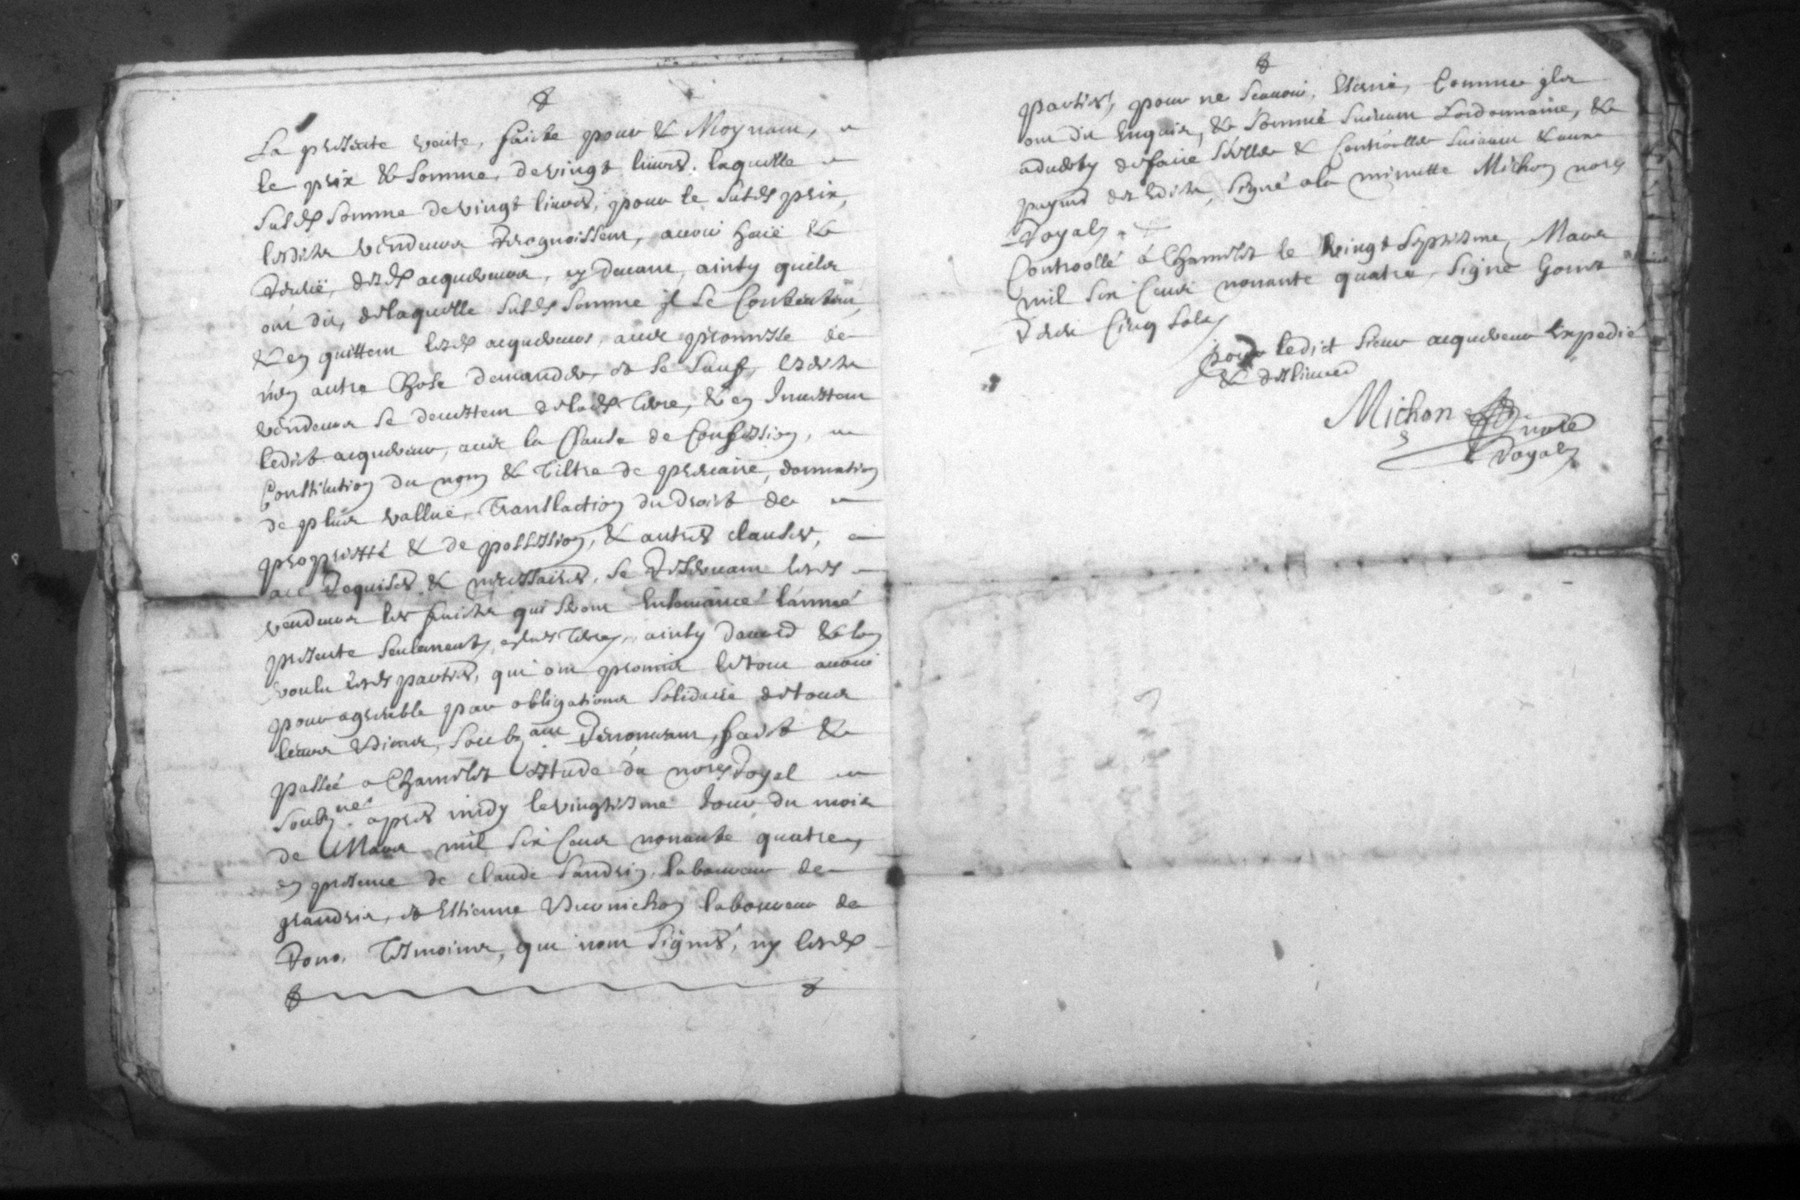 La presente vente, faicte pour & Moynant,
le prix & somme, de vingt livres, laquelle
susd. somme de vingt livres, pour le susd. prix,
lesdits vendeurs recognoissent, avoir heü &
receü, dud. acquereur, cy devant, ainsy quils
ont dit, de laquelle susd. somme jl se contentent,
& en quittent led. acquereur, avec promesse de
rien autre chose demander, & se sont, lesdits
vendeurs se devestent de lad. terre, & en Investent
ledit acquereur, avec la Clause de Confession,
Constitution du nom & tiltre de precaire, donnation
de plus vallue, Translaction du droict de
proprietté & de possession, & autres clauses,
requises & necessaires, se reservant lesd.
vendeurs les fruicts qui sont Ensemancé lannée
presente seulement, terre, ainsy
voulu lesd. parties, qui ont promis le tout avoir
pour agreable par obligations solidaire de tous
leurs biens, soub. renoncant, faict &
passé a Chamelet estude du nore. Royal
soub.né apres midy le vingtiesme Jour du mois
de Mars mil six cens nonante quatre,
en presence de claude Sandrin, laboureur de
grandris, & Estienne laboureur de
Tesmoins, qui nont signés, ny lesd.
parties, pour ne scavoir, Escrire, Comme jls
ont dit Enquis, & sommé suivant Lordonnance, &
adverty de faire seller & Controller suivant &
des Edits, signé a la minutte Michon nore.
Royal.
Controollé a Chamelet le Vingt septiesme Mars
mil six Cens nonante quatre, signé
receu Cinq sols
pour ledict sieur acquereur Expedié
& deslivré
Michon nore
Royal